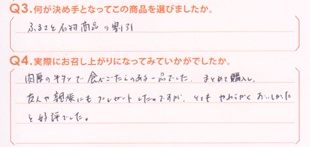 Q3.何が決め手となってこの商品を選びましたか。
ふるさと応援商品の割引
Q4.実際にお召し上がりになってみていかがでしたか。
肉厚のキクラゲで食べごたえのある一品でした。まとめて購入し、
友人や親族にもプレゼントしたのですが、とてもやわらかくおいしかった
と好評でした。